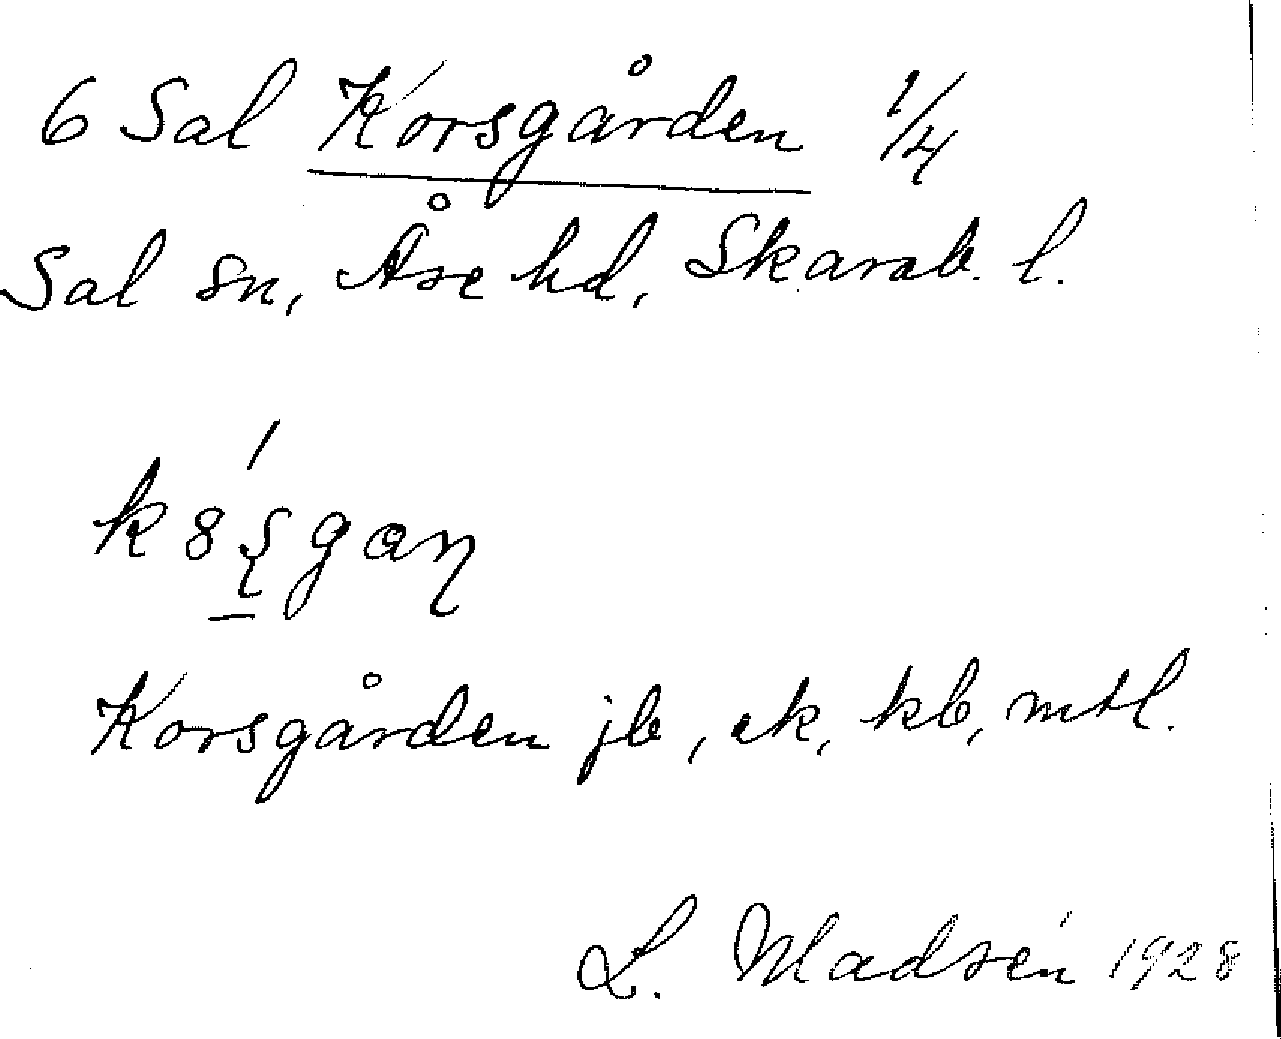 6 Sal Korsgården 1/4
Sal sn, Åse hd, Skarab. l.
Korsgården jb, ek, kb, mtl.
L. Madsén 1928